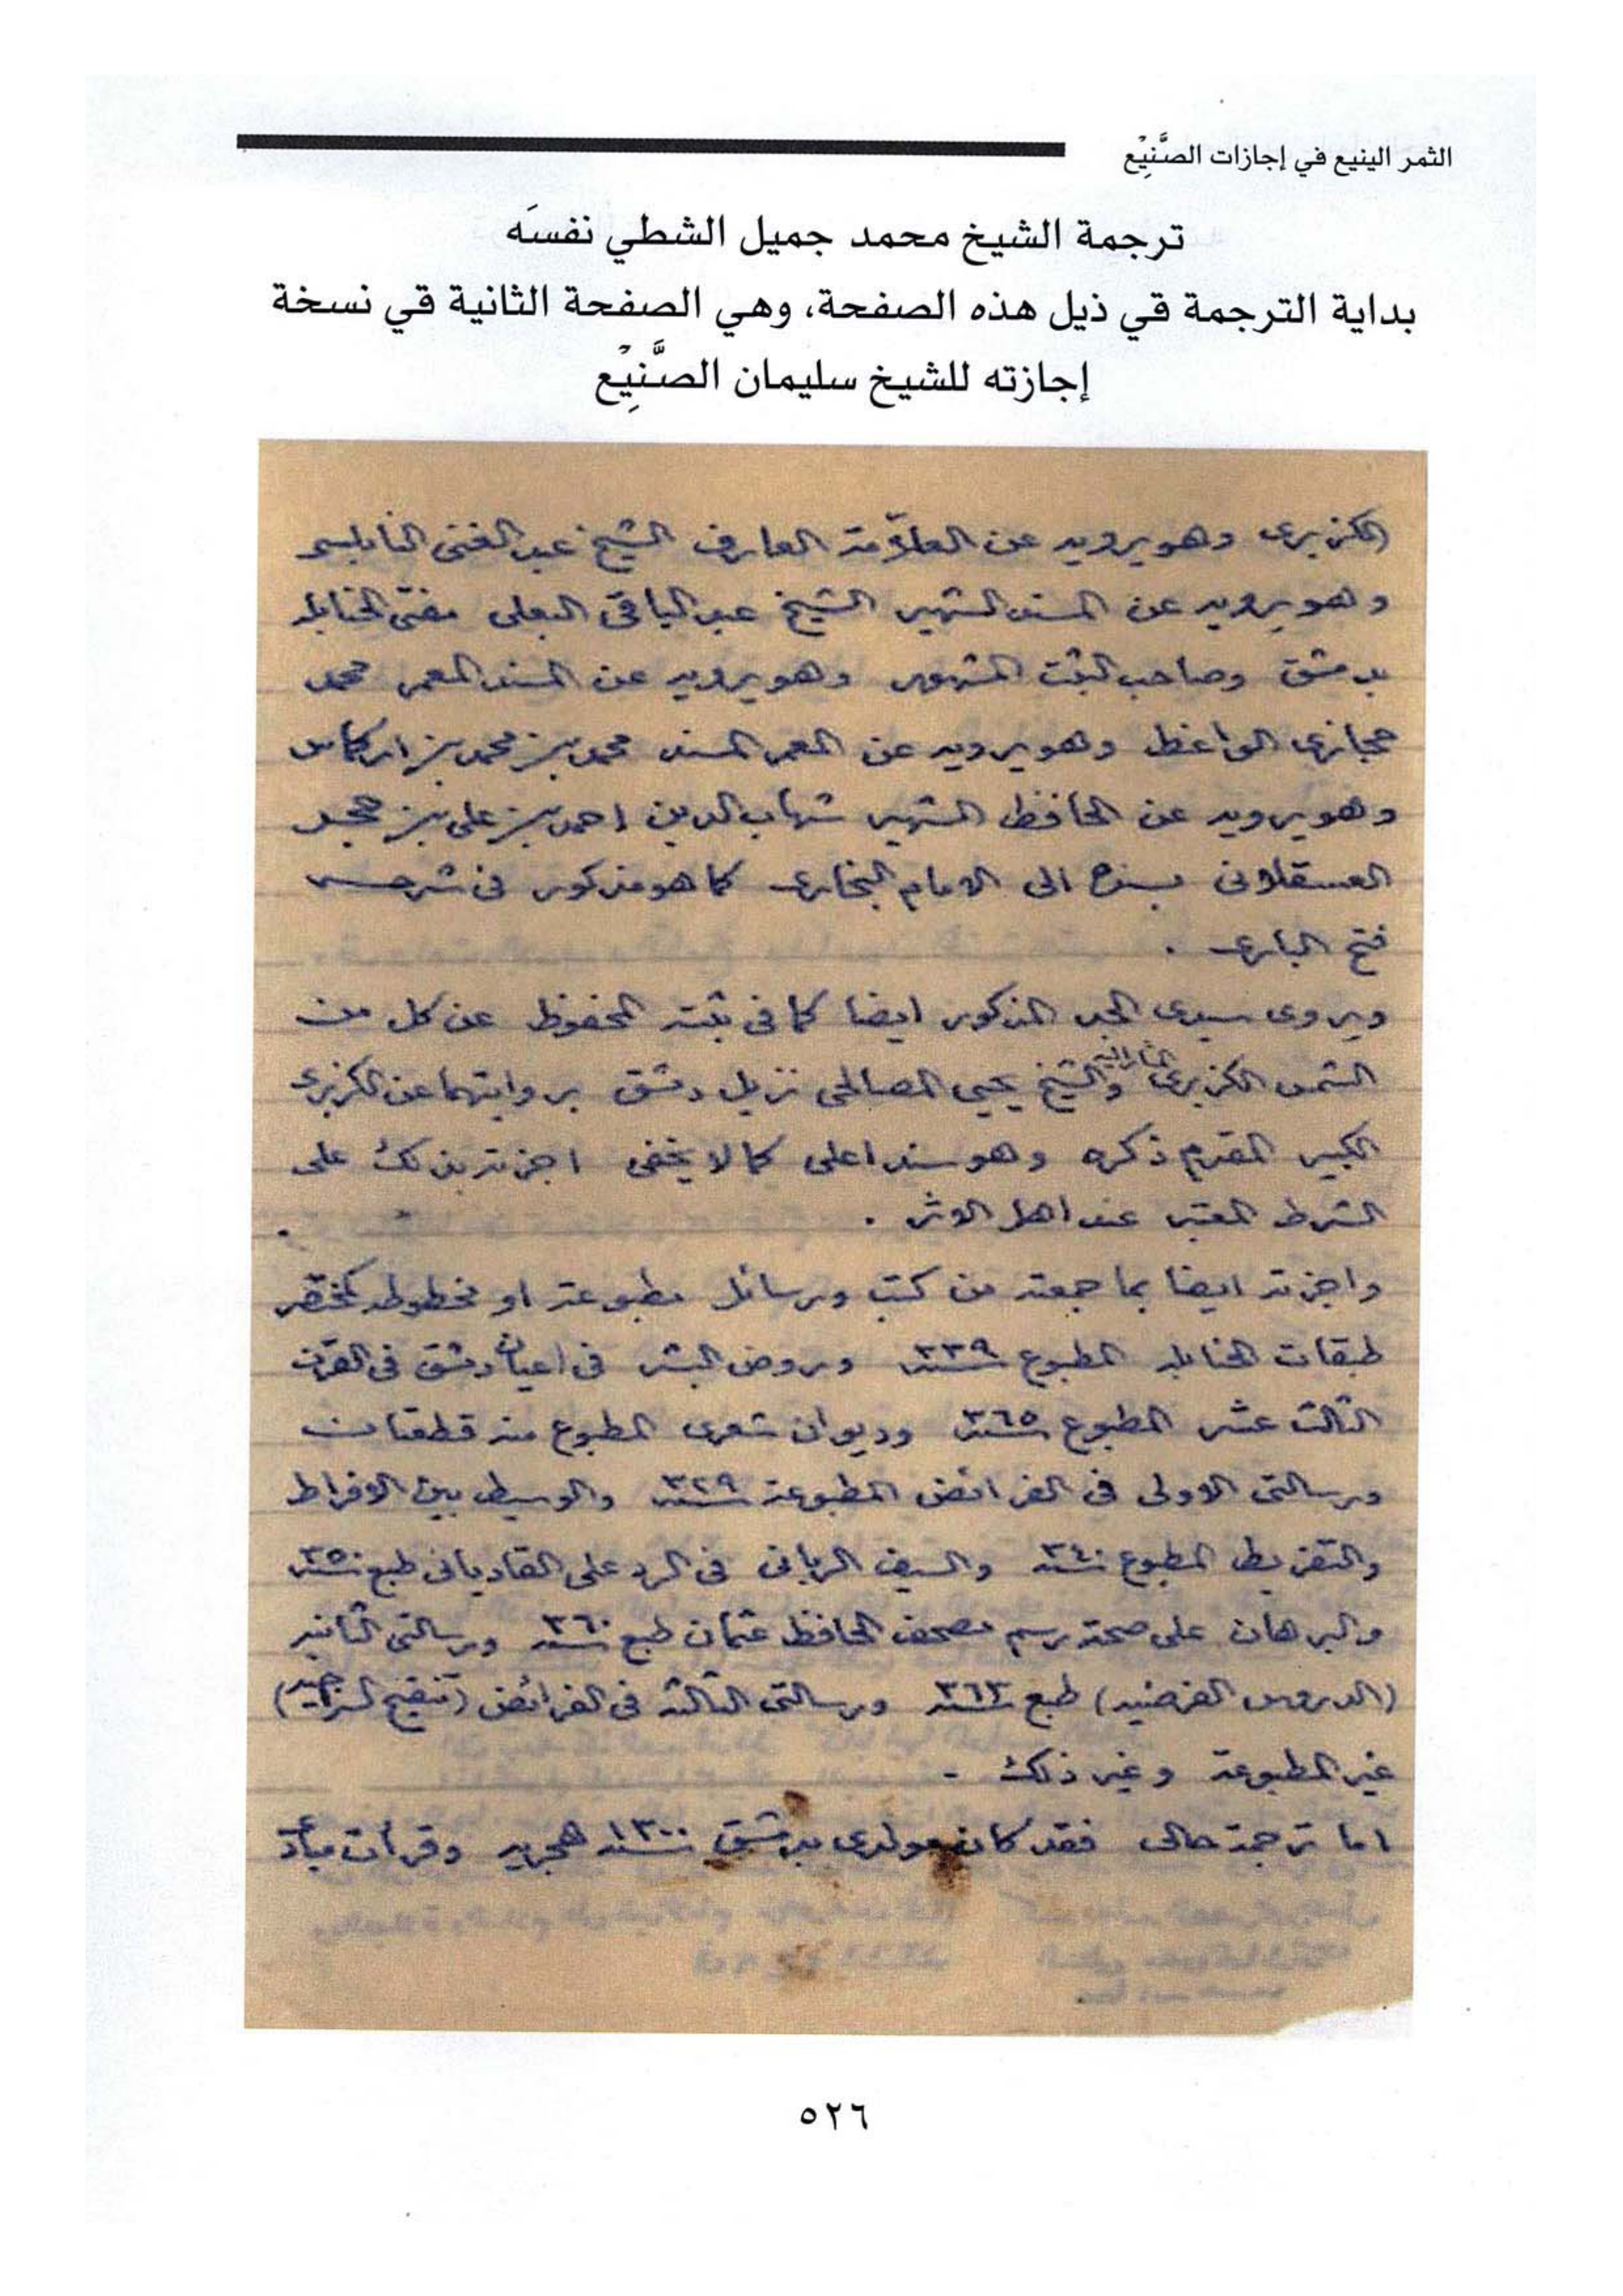 الثمر الينيع في إجازات الصَّنِيْع
ترجمة الشيخ محمد جميل الشطي نفسَه
بداية الترجمة قي ذيل هذه الصفحة، وهي الصفحة الثانية قي نسخة
إجازته للشيخ سليمان الصَّنِيْع
الكزبري وهو يرويه عن العلاّمة العارف الشيخ عبد الغني النابلسي
وهو يرويه عن المسند الشهير الشيخ عبد الباقي البعلي مفتي الحنابلة
بدمشق وصاحب الثبت المشهور وهو يرويه عن المسند المعمر محمد
حجازي الواعظ وهو يرويه عن المعمر المسند محمد بن محمد بن اركماس
وهو يرويه عن الحافظ الشهير شهاب الدين احمد بن علي بن حجر
العسقلاني بسنده الى الامام البخاري كما هو مذكور في شرحه
فتح الباري .
ويروي سيدي الجد المذكور ايضا كما في ثبته المحفوظ عن كل من
الشمس الكزبري المشار اليه والشيخ يحيى المصالحي نزيل دمشق بروايتهما عن الكزبري
الكبير المقدم ذكره وهو سند اعلى كما لا يخفى اجزته بذلك على
الشرط المعتبر عند اهل الاثر .
واجزته ايضا بما جمعته من كتب ورسائل مطبوعة او مخطوطة كمختصر
طبقات الحنابلة المطبوع سنة ٣٣٩ وروض البشر في اعيان دمشق في القرن
الثالث عشر المطبوع سنة ٣٦٥ وديوان شعري المطبوع منه قطعتان
ورسالتي الاولى في الفرائض المطبوعة سنة ٣٢٩ والوسيط بين الافراط
والتفريط المطبوع سنة ٣٤٠ والسيف الرباني في الرد على القادياني طبع سنة ٣٥٠
والبرهان على صحة رسم مصحف الحافظ عثمان طبع سنة ٣٦٠ ورسالتي الثانية
(الدروس الفرضية) طبع سنة ٣٦٣ ورسالتي الثالثة في الفرائض (تنقيح السراجية)
غير المطبوعة وغير ذلك -
اما ترجمة حالي فقد كان مولدي بدمشق سنة ١٣٠٠ هجرية وقرأت مبادئ
٥٢٦